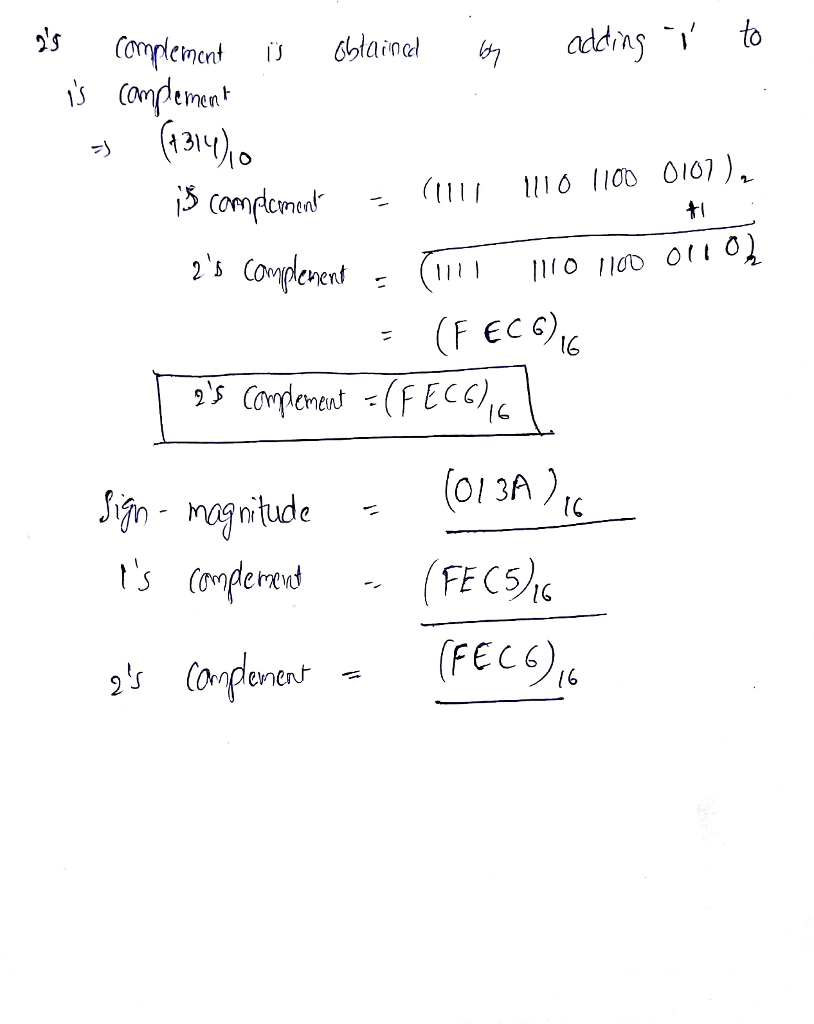 2's complement is obtained by adding '1' to
1's complement
⇒ (+314)₁₀
1's complement = (1111 1110 1100 0101)₂
+1
2's complement = (1111 1110 1100 0110)₂
= (FEC6)₁₆
2's complement = (FEC6)₁₆
Sign - magnitude = (013A)₁₆
1's complement = (FEC5)₁₆
2's complement = (FEC6)₁₆